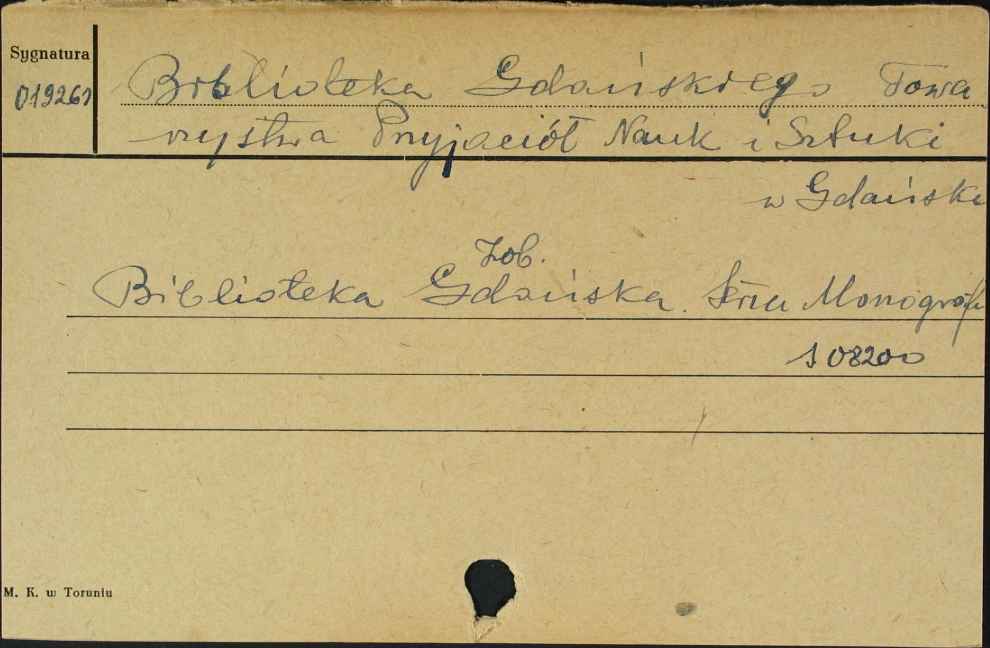 Sygnatura
Biblioteka Gdańskiego Towa
rzystwa Przyjaciół Nauk i Sztuki
w Gdańsku
Zob.
Biblioteka Gdańska. Seria Monografi
108200
M. K. w Toruniu